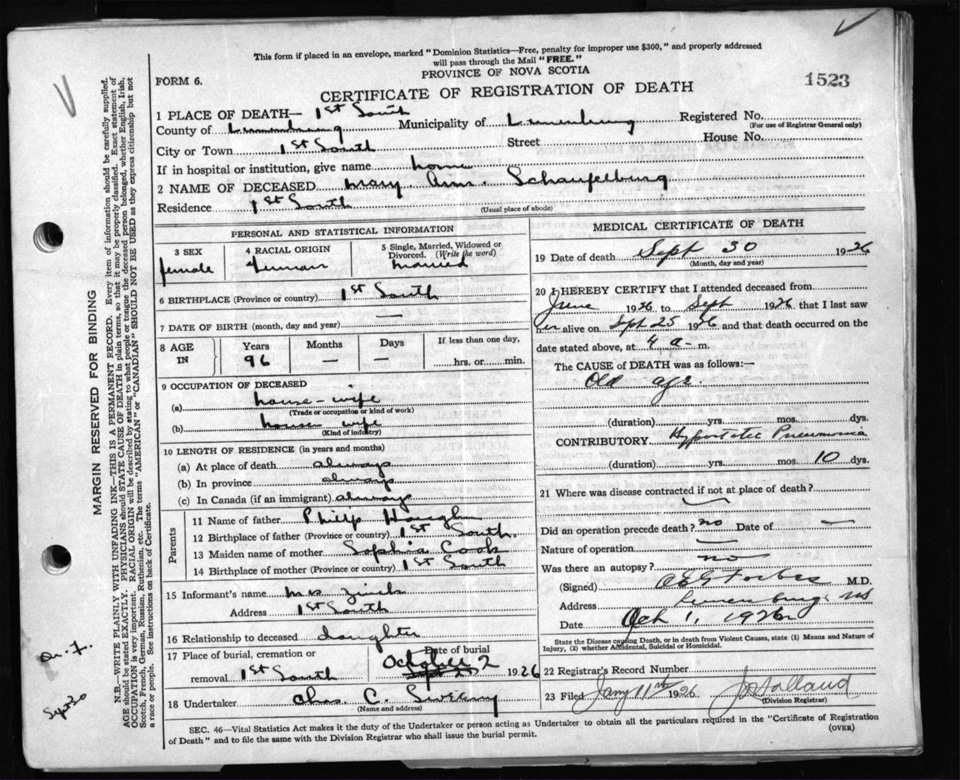 This form if placed in an envelope, marked "Dominion Statistics—Free, penalty for improper use $300," and properly addressed
will pass through the Mail "FREE."
PROVINCE OF NOVA SCOTIA
FORM 6.
1523
CERTIFICATE OF REGISTRATION OF DEATH
1 PLACE OF DEATH— 1st South
County of Lunenburg Municipality of Lunenburg Registered No.
(For use of Registrar General only)
City or Town 1st South Street House No.
If in hospital or institution, give name home
2 NAME OF DECEASED Mary Ann Schaufelburg
Residence 1st South
(Usual place of abode)
PERSONAL AND STATISTICAL INFORMATION
3 SEX
female
4 RACIAL ORIGIN
German
5 Single, Married, Widowed or
Divorced. (Write the word)
married
6 BIRTHPLACE (Province or country) 1st South
7 DATE OF BIRTH (month, day and year) —
8 AGE
IN
Years
96
Months
—
Days
—
If less than one day,
hrs. or min.
9 OCCUPATION OF DECEASED
(a) house-wife
(Trade or occupation or kind of work)
(b) house wife
(Kind of industry)
10 LENGTH OF RESIDENCE (in years and months)
(a) At place of death always
(b) In province always
(c) In Canada (if an immigrant) always
Parents
11 Name of father Philip
12 Birthplace of father (Province or country) 1st South.
13 Maiden name of mother Sophia Cook
14 Birthplace of mother (Province or country) 1st South
15 Informant's name Mrs Zinck
Address 1st South
16 Relationship to deceased daughter
17 Place of burial, cremation or
removal 1st South
Date of burial
October 2 1926
18 Undertaker Chas. C. Sweeny
(Name and address)
MEDICAL CERTIFICATE OF DEATH
19 Date of death Sept 30 1926
(Month, day and year)
20 I HEREBY CERTIFY that I attended deceased from
June 1926 to Sept 1926 that I last saw
her alive on Sept 25 1926 and that death occurred on the
date stated above, at 4 a- m.
The CAUSE of DEATH was as follows:—
Old age.
(duration) yrs. mos. dys.
CONTRIBUTORY Hypostatic Pneumonia
(duration) yrs. mos. 10 dys.
21 Where was disease contracted if not at place of death?
Did an operation precede death? no Date of —
Nature of operation —
Was there an autopsy? no
(Signed) Forbes M.D.
Address Lunenburg NS
Date Oct 1, 1926
State the Disease causing Death, or in death from Violent Causes, state (1) Means and Nature of
Injury, (2) whether Accidental, Suicidal or Homicidal.
22 Registrar's Record Number
23 Filed Jany 11th 1926
(Division Registrar)
SEC. 46—Vital Statistics Act makes it the duty of the Undertaker or person acting as Undertaker to obtain all the particulars required in the "Certificate of Registration
of Death" and to file the same with the Division Registrar who shall issue the burial permit.
(OVER)
MARGIN RESERVED FOR BINDING
N.B.—WRITE PLAINLY WITH UNFADING INK—THIS IS A PERMANENT RECORD. Every item of information should be carefully supplied.
AGE should be stated EXACTLY. PHYSICIANS should STATE CAUSE OF DEATH in plain terms, so that it may be properly classified. Exact statement of
OCCUPATION is very important. RACIAL ORIGIN will be described by stating to what people or tongue the deceased person belonged, whether English, Irish,
Scotch, French, German, Russian, Ruthenian, etc. The terms "AMERICAN" or "CANADIAN" SHOULD NOT BE USED as they express citizenship but not
a race or people. See instructions on back of Certificate.